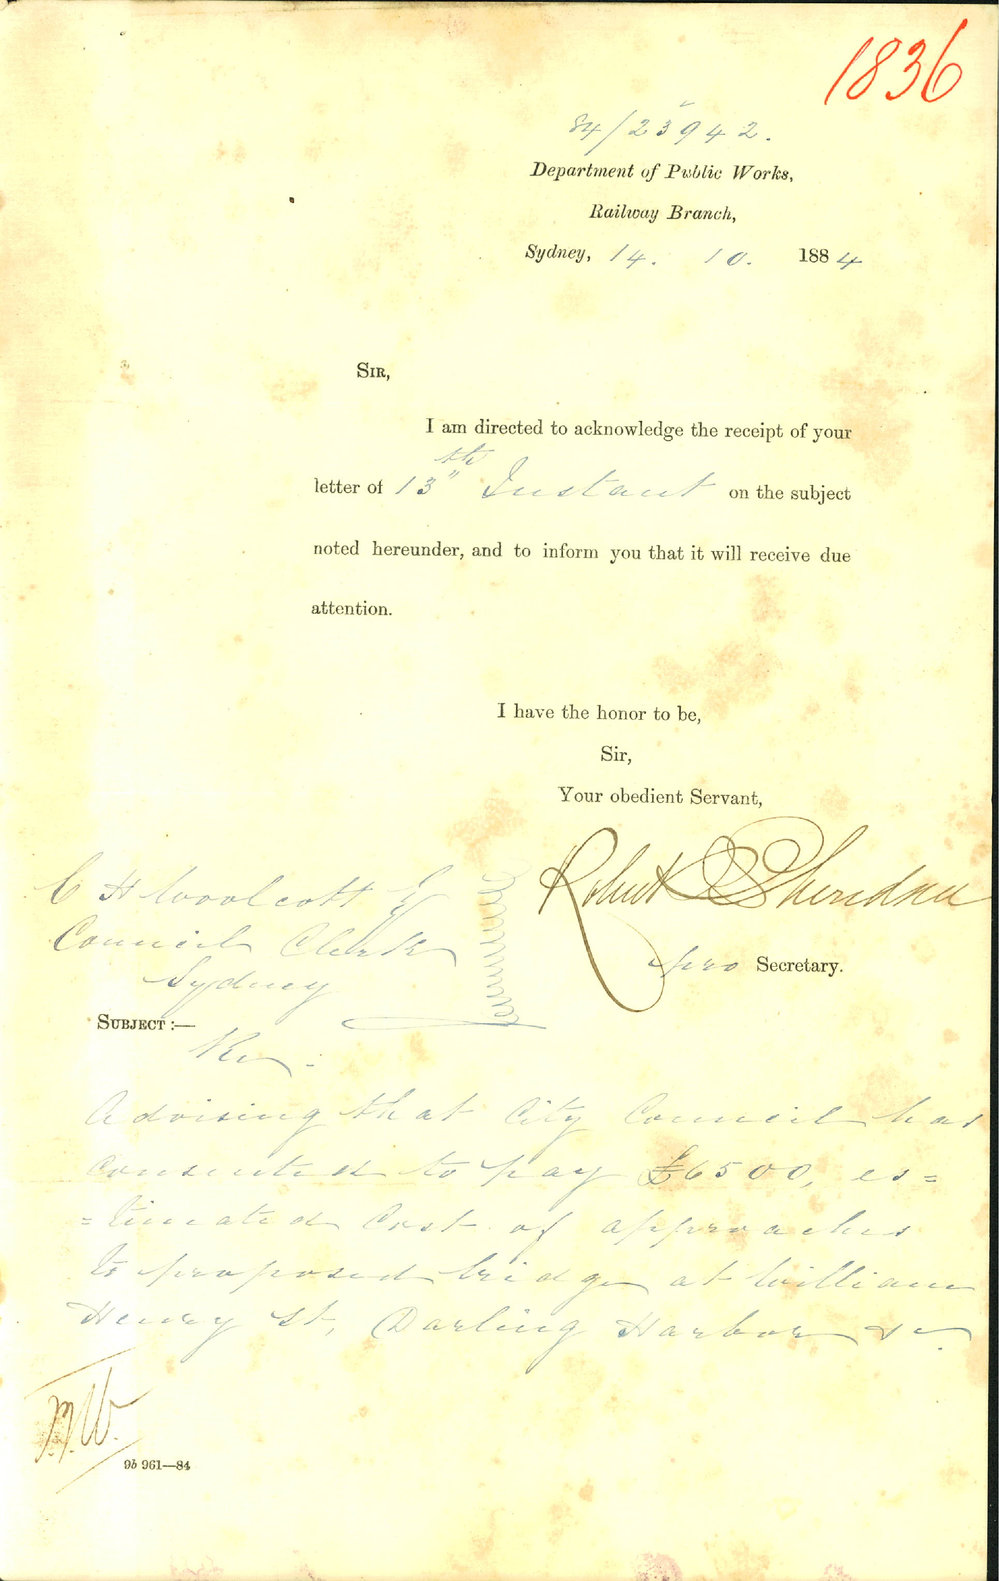 1836
84/23942.
Department of Public Works,
Railway Branch,
Sydney, 14. 10. 1884
SIR,
I am directed to acknowledge the receipt of your
letter of 13th Instant on the subject
noted hereunder, and to inform you that it will receive due
attention.
I have the honor to be,
Sir,
Your obedient Servant,
Robert Sheridan
pro Secretary.
C H Woolcott Esq
Council Clerk
Sydney
SUBJECT :—
Re :
Advising that City Council has
consented to pay £6500, es=
=timated Cost of approaches
to proposed bridge at William
Henry St, Darling Harbor &c.
9b 961—84